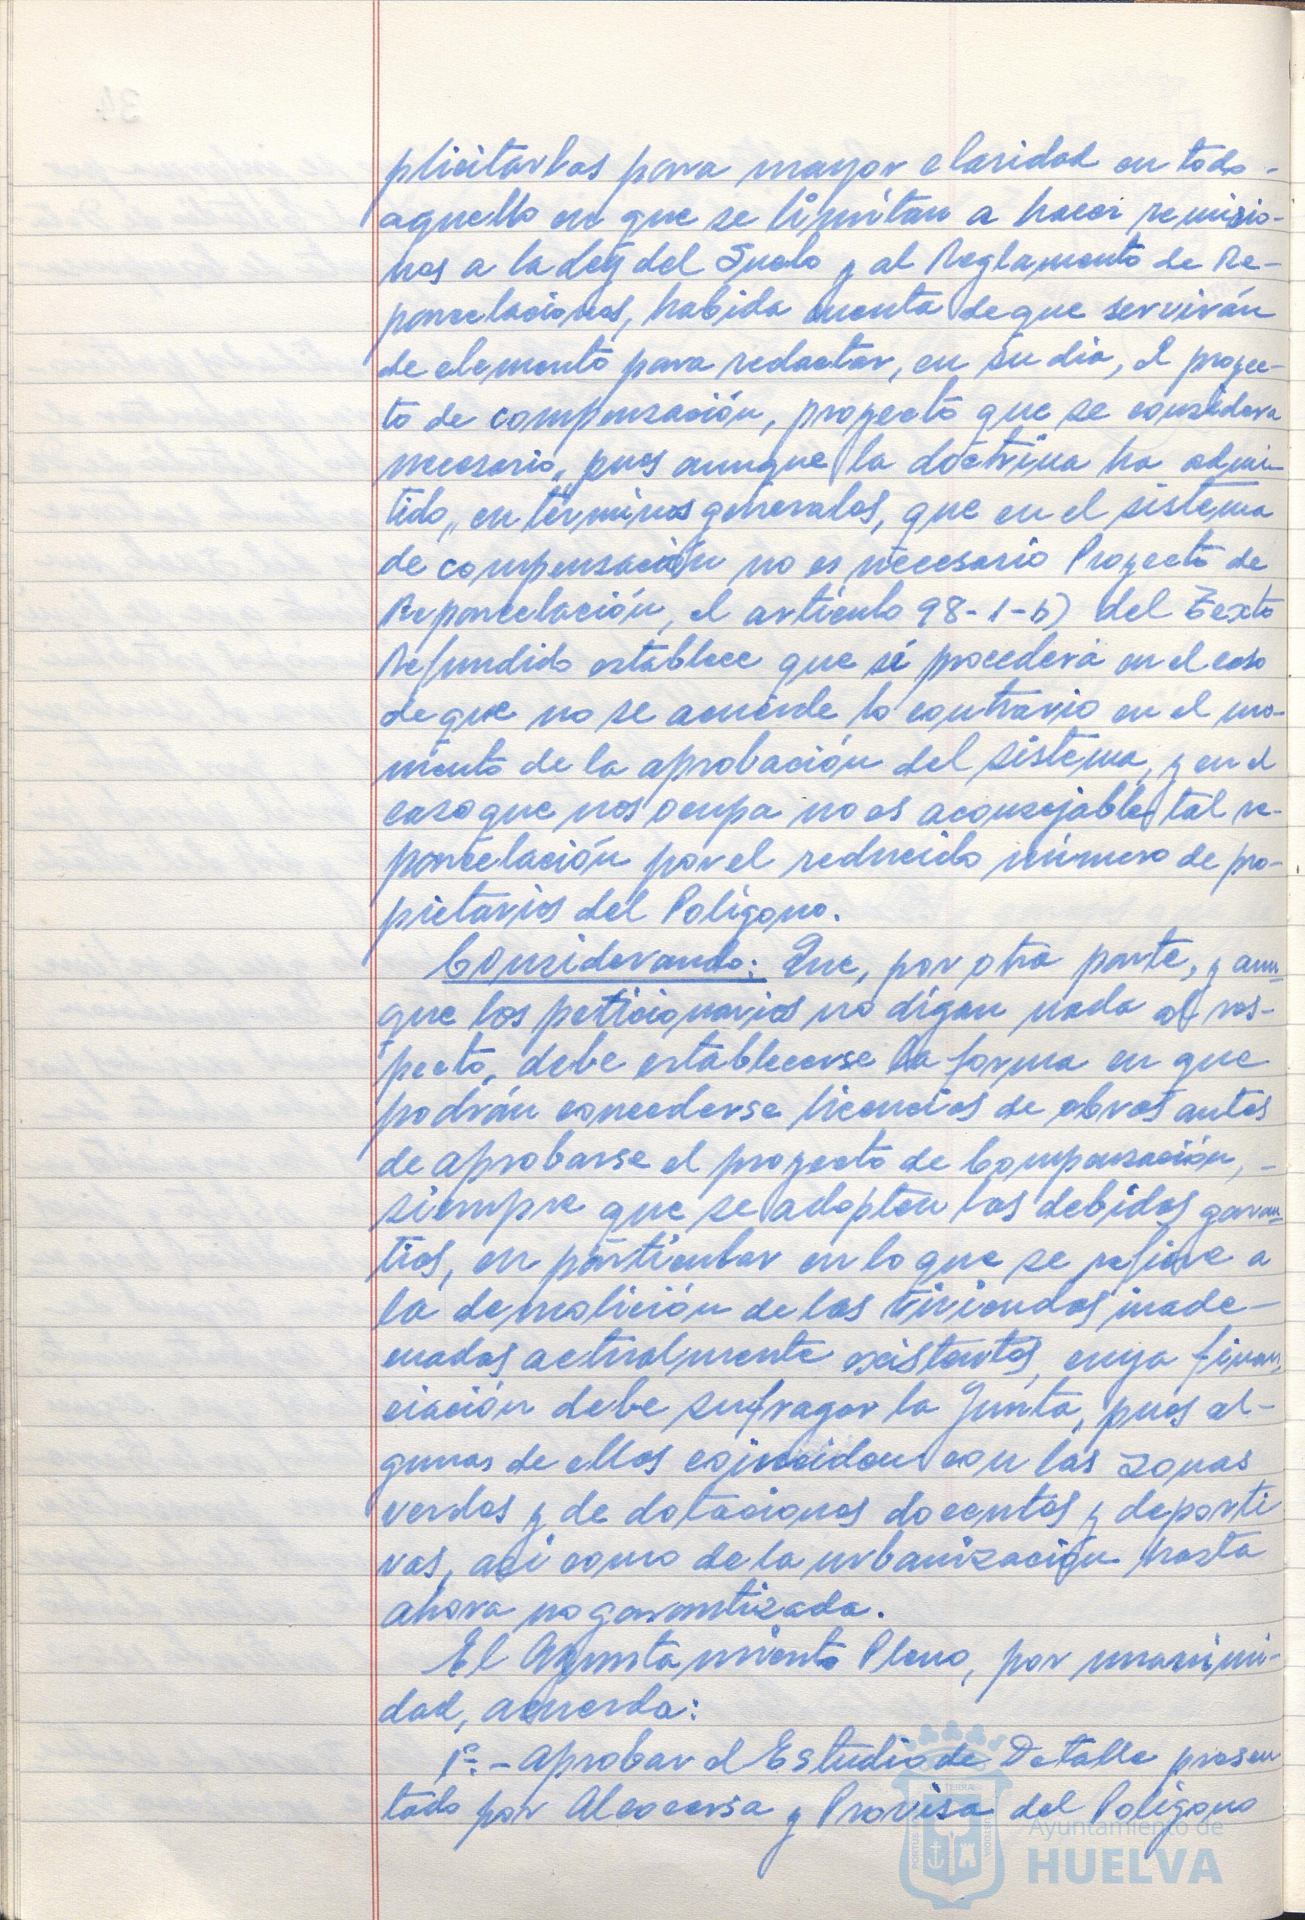 plicitarlas para mayor claridad en todo
aquello en que se limitan a hacer remisio-
nes a la Ley del Suelo y al Reglamento de Re-
parcelaciones, habida cuenta de que servirán
de elemento para redactar, en su dia, el proyec-
to de compensación, proyecto que se considera
necesario, pues aunque la doctrina ha admi-
tido, en términos generales, que en el sistema
de compensación no es necesario Proyecto de
Reparcelación, el artículo 98-1-b) del Texto
Refundido establece que sí procederá en el caso
de que no se acuerde lo contrario en el mo-
mento de la aprobación del sistema, y en el
caso que nos ocupa no es aconsejable tal re-
parcelación por el reducido número de pro-
pietarios del Polígono.
Considerando: Que, por otra parte, y aun
que los peticionarios no digan nada al res-
pecto, debe establecerse la forma en que
podrán concederse licencias de obras antes
de aprobarse el proyecto de Compensación,
siempre que se adopten las debidas garan-
tías, en particular en lo que se refiere a
la demolición de las viviendas inade-
cuadas actualmente existentes, cuya finan-
ciación debe sufragar la Junta, pues al-
gunas de ellas coinciden con las zonas
verdes y de dotaciones docentes y deporti
vas, así como de la urbanización hasta
ahora no garantizada.
El Ayuntamiento Pleno, por unanimi-
dad, acuerda:
1º.- Aprobar el Estudio de Detalle presen
tado por Alcocersa y Provisa del Polígono
Ayuntamiento de
HUELVA